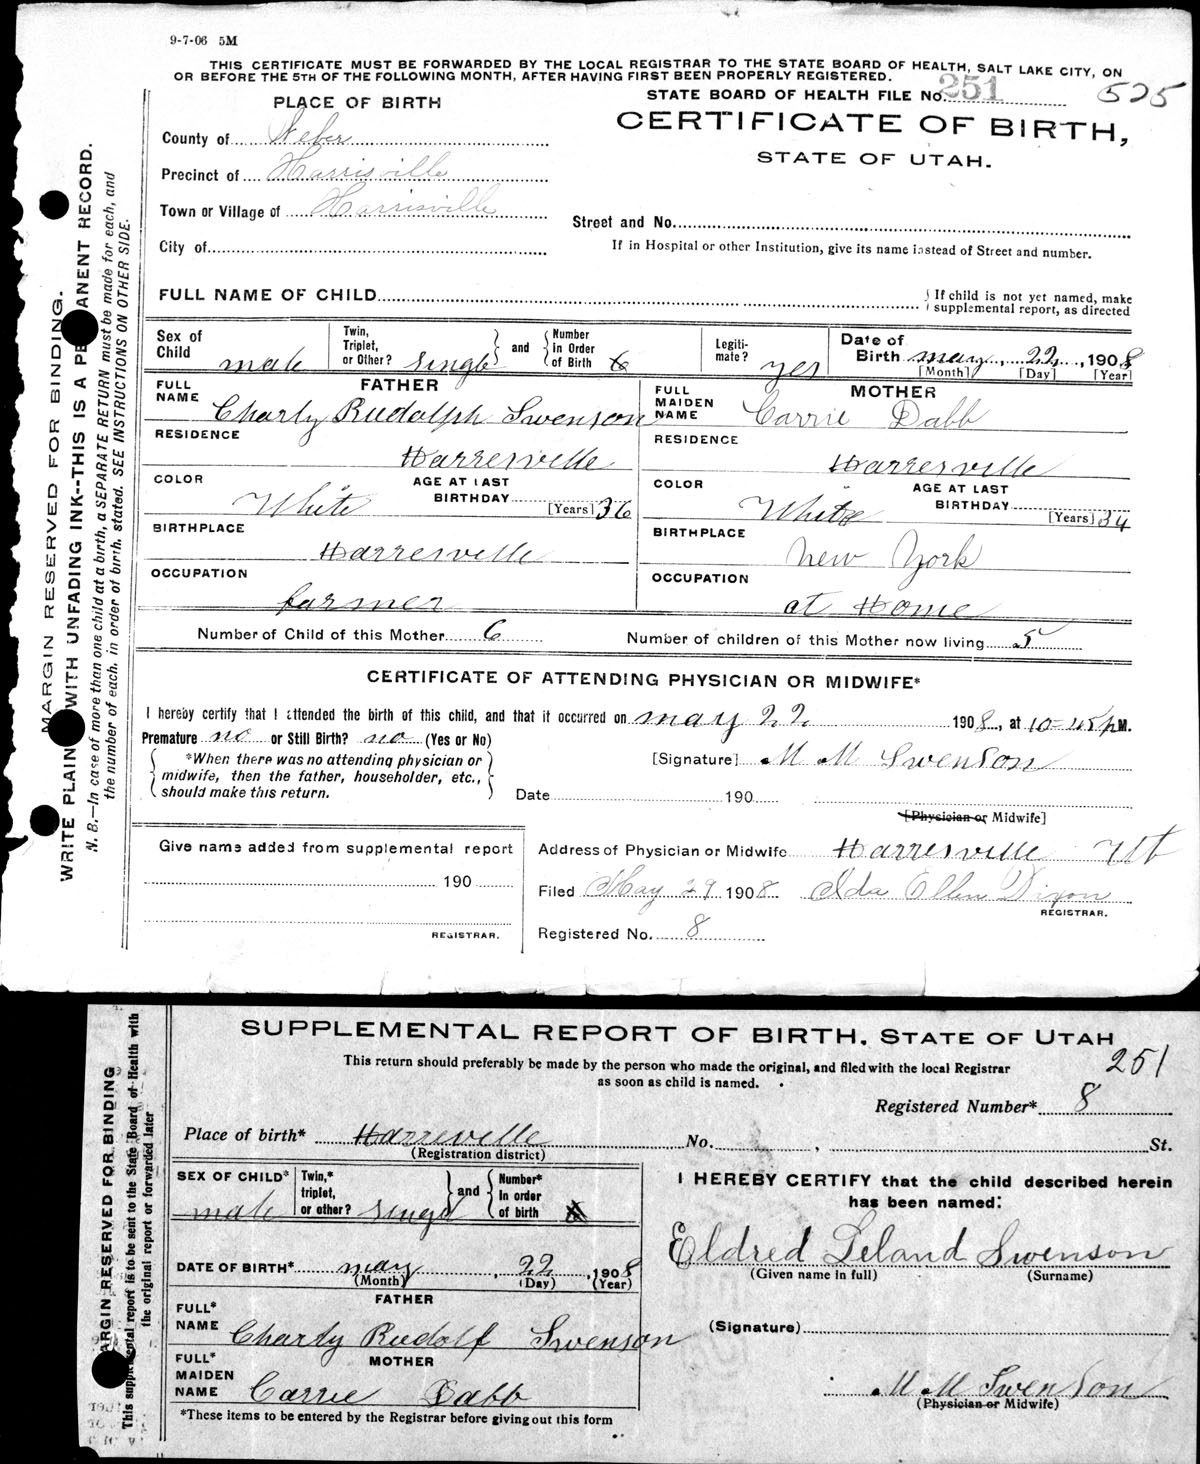 9-7-06 5M
THIS CERTIFICATE MUST BE FORWARDED BY THE LOCAL REGISTRAR TO THE STATE BOARD OF HEALTH, SALT LAKE CITY, ON
OR BEFORE THE 5TH OF THE FOLLOWING MONTH, AFTER HAVING FIRST BEEN PROPERLY REGISTERED.
STATE BOARD OF HEALTH FILE No. 251 525
PLACE OF BIRTH
CERTIFICATE OF BIRTH,
STATE OF UTAH.
County of Weber
Precinct of Harrisville
Town or Village of Harrisville
Street and No.
City of
If in Hospital or other Institution, give its name instead of Street and number.
FULL NAME OF CHILD
If child is not yet named, make
supplemental report, as directed
Sex of Child male Twin, Triplet, or Other? single and Number in Order of Birth 6 Legiti-mate? yes Date of Birth may 22, 1908
[Month] [Day] [Year]
FATHER
MOTHER
FULL NAME Charly Rudolph Swenson
FULL MAIDEN NAME Carrie Dabb
RESIDENCE Harresville
RESIDENCE Harresville
COLOR White AGE AT LAST BIRTHDAY [Years] 36
COLOR White AGE AT LAST BIRTHDAY [Years] 34
BIRTHPLACE Harresville
BIRTHPLACE New York
OCCUPATION farmer
OCCUPATION at Home
Number of Child of this Mother 6 Number of children of this Mother now living 5
CERTIFICATE OF ATTENDING PHYSICIAN OR MIDWIFE*
I hereby certify that I attended the birth of this child, and that it occurred on may 22 1908, at 10-45 P M.
Premature no or Still Birth? no (Yes or No)
*When there was no attending physician or
midwife, then the father, householder, etc.,
should make this return.
[Signature] M M Swenson
Date 190
[Physician or Midwife]
Give name added from supplemental report
190
REGISTRAR.
Address of Physician or Midwife Harresville Ut
Filed May 29 1908 Ida Ellen Dixon
REGISTRAR.
Registered No. 8
MARGIN RESERVED FOR BINDING.
WRITE PLAIN WITH UNFADING INK--THIS IS A PE ANENT RECORD.
N. B.—In case of more than one child at a birth, a SEPARATE RETURN must be made for each, and
the number of each, in order of birth, stated. SEE INSTRUCTIONS ON OTHER SIDE.
SUPPLEMENTAL REPORT OF BIRTH, STATE OF UTAH
This return should preferably be made by the person who made the original, and filed with the local Registrar
as soon as child is named.
251
Registered Number* 8
Place of birth* Harreville No. , St.
(Registration district)
SEX OF CHILD* male Twin,* triplet, or other? singel and Number* In order of birth
I HEREBY CERTIFY that the child described herein
has been named:
Eldred Leland Swenson
(Given name in full) (Surname)
DATE OF BIRTH* may, 22, 1908
(Month) (Day) (Year)
FATHER
FULL* NAME Charly Rudolf Swenson
(Signature)
MOTHER
FULL* MAIDEN NAME Carrie Dabb
M M Swenson
(Physician or Midwife)
*These items to be entered by the Registrar before giving out this form
ARGIN RESERVED FOR BINDING
This supplemental report is to be sent to the State Board of Health with
the original report or forwarded later